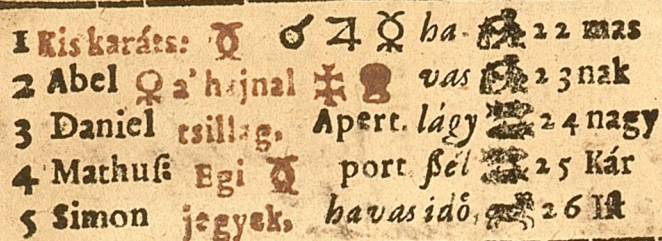 1 Kis karáts: ☿ ♂ ♃ ☿ ha- 22 mas
2 Abel ♀ a' hajnal vas 23 nak
3 Daniel tsillag, Apert. lágy 24 nagy
4 Mathuſ: Egi ☿ port ßél 25 Kár
5 Simon jegyek, havas idő, 26 Iſt